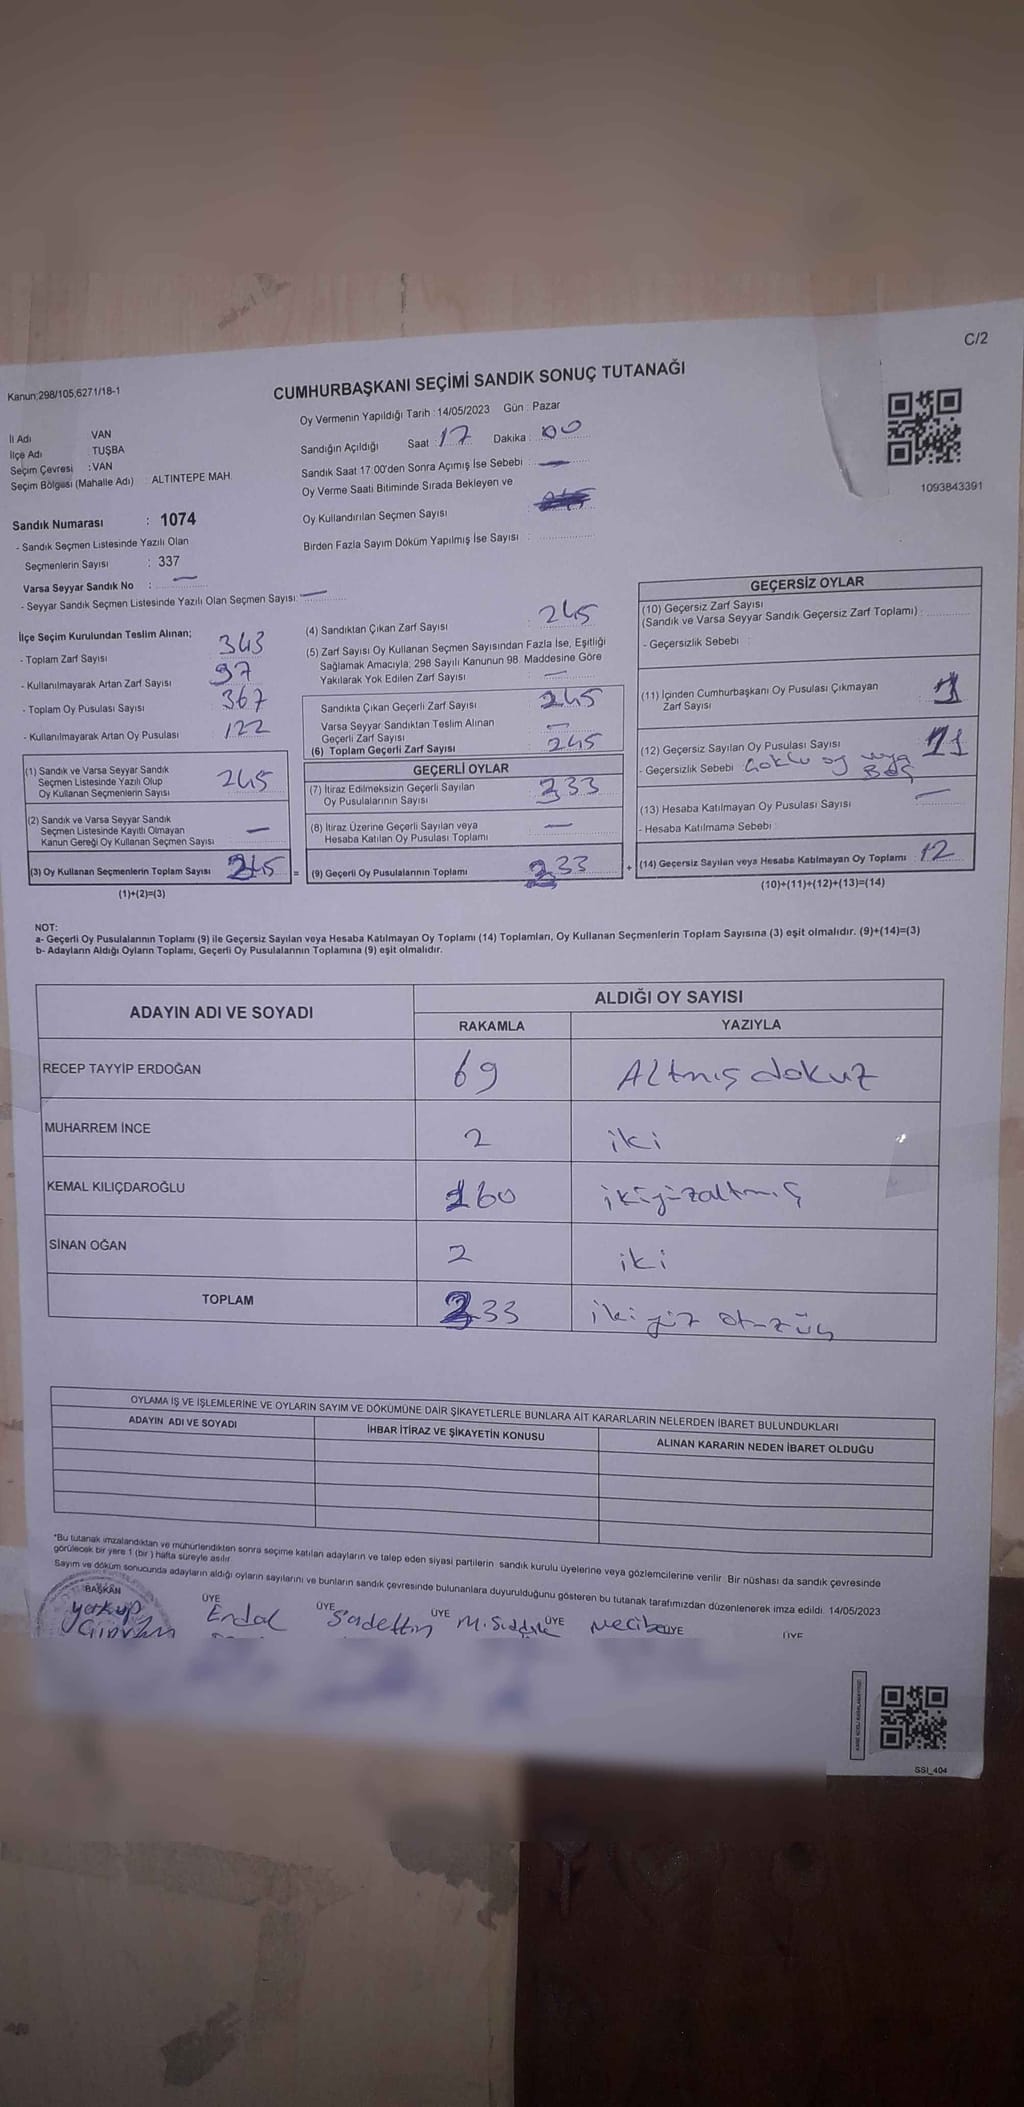 C/2
Kanun;298/105,6271/18-1
CUMHURBAŞKANI SEÇİMİ SANDIK SONUÇ TUTANAĞI
Oy Vermenin Yapıldığı Tarih : 14/05/2023 Gün : Pazar
İl Adı VAN
İlçe Adı : TUŞBA
Seçim Çevresi : VAN
Seçim Bölgesi (Mahalle Adı) : ALTINTEPE MAH.
Sandığın Açıldığı Saat : 17 Dakika : 00
Sandık Saat 17:00'den Sonra Açımış İse Sebebi : —
Oy Verme Saati Bitiminde Sırada Bekleyen ve
Oy Kullandırılan Seçmen Sayısı :
Birden Fazla Sayım Döküm Yapılmış İse Sayısı :
1093843391
Sandık Numarası : 1074
- Sandık Seçmen Listesinde Yazılı Olan
Seçmenlerin Sayısı : 337
Varsa Seyyar Sandık No : —
- Seyyar Sandık Seçmen Listesinde Yazılı Olan Seçmen Sayısı: —
İlçe Seçim Kurulundan Teslim Alınan;
- Toplam Zarf Sayısı 343
- Kullanılmayarak Artan Zarf Sayısı 97
- Toplam Oy Pusulası Sayısı 367
- Kullanılmayarak Artan Oy Pusulası 122
(1) Sandık ve Varsa Seyyar Sandık
Seçmen Listesinde Yazılı Olup
Oy Kullanan Seçmenlerin Sayısı 245
(2) Sandık ve Varsa Seyyar Sandık
Seçmen Listesinde Kayıtlı Olmayan
Kanun Gereği Oy Kullanan Seçmen Sayısı —
(3) Oy Kullanan Seçmenlerin Toplam Sayısı 245 =
(1)+(2)=(3)
(4) Sandıktan Çıkan Zarf Sayısı 245
(5) Zarf Sayısı Oy Kullanan Seçmen Sayısından Fazla İse, Eşitliği
Sağlamak Amacıyla, 298 Sayılı Kanunun 98. Maddesine Göre
Yakılarak Yok Edilen Zarf Sayısı —
Sandıkta Çıkan Geçerli Zarf Sayısı 245
Varsa Seyyar Sandıktan Teslim Alınan
Geçerli Zarf Sayısı —
(6) Toplam Geçerli Zarf Sayısı 245
GEÇERLİ OYLAR
(7) İtiraz Edilmeksizin Geçerli Sayılan
Oy Pusulalarının Sayısı 333
(8) İtiraz Üzerine Geçerli Sayılan veya
Hesaba Katılan Oy Pusulası Toplamı —
(9) Geçerli Oy Pusulalarının Toplamı 233 +
GEÇERSİZ OYLAR
(10) Geçersiz Zarf Sayısı
(Sandık ve Varsa Seyyar Sandık Geçersiz Zarf Toplamı) :
- Geçersizlik Sebebi :
(11) İçinden Cumhurbaşkanı Oy Pusulası Çıkmayan
Zarf Sayısı 1
(12) Geçersiz Sayılan Oy Pusulası Sayısı 11
- Geçersizlik Sebebi Çoklu oy veya Boş
(13) Hesaba Katılmayan Oy Pusulası Sayısı —
- Hesaba Katılmama Sebebi :
(14) Geçersiz Sayılan veya Hesaba Katılmayan Oy Toplamı : 12
(10)+(11)+(12)+(13)=(14)
NOT:
a- Geçerli Oy Pusulalarının Toplamı (9) ile Geçersiz Sayılan veya Hesaba Katılmayan Oy Toplamı (14) Toplamları, Oy Kullanan Seçmenlerin Toplam Sayısına (3) eşit olmalıdır. (9)+(14)=(3)
b- Adayların Aldığı Oyların Toplamı, Geçerli Oy Pusulalarının Toplamına (9) eşit olmalıdır.
ADAYIN ADI VE SOYADI ALDIĞI OY SAYISI
RAKAMLA YAZIYLA
RECEP TAYYİP ERDOĞAN 69 Altmış dokuz
MUHARREM İNCE 2 iki
KEMAL KILIÇDAROĞLU 160 ikiyüzaltmış
SİNAN OĞAN 2 iki
TOPLAM 233 ikiyüz otuzüç
OYLAMA İŞ VE İŞLEMLERİNE VE OYLARIN SAYIM VE DÖKÜMÜNE DAİR ŞİKAYETLERLE BUNLARA AİT KARARLARIN NELERDEN İBARET BULUNDUKLARI
ADAYIN ADI VE SOYADI İHBAR İTİRAZ VE ŞİKAYETİN KONUSU ALINAN KARARIN NEDEN İBARET OLDUĞU
*Bu tutanak imzalandıktan ve mühürlendikten sonra seçime katılan adayların ve talep eden siyasi partilerin sandık kurulu üyelerine veya gözlemcilerine verilir. Bir nüshası da sandık çevresinde
görülecek bir yere 1 (bir) hafta süreyle asılır.
Sayım ve döküm sonucunda adayların aldığı oyların sayılarını ve bunların sandık çevresinde bulunanlara duyurulduğunu gösteren bu tutanak tarafımızdan düzenlenerek imza edildi. 14/05/2023
BAŞKAN ÜYE ÜYE ÜYE ÜYE ÜYE ÜYE
Yakup Erdal Sadettin M.Sıddık
SSI_404